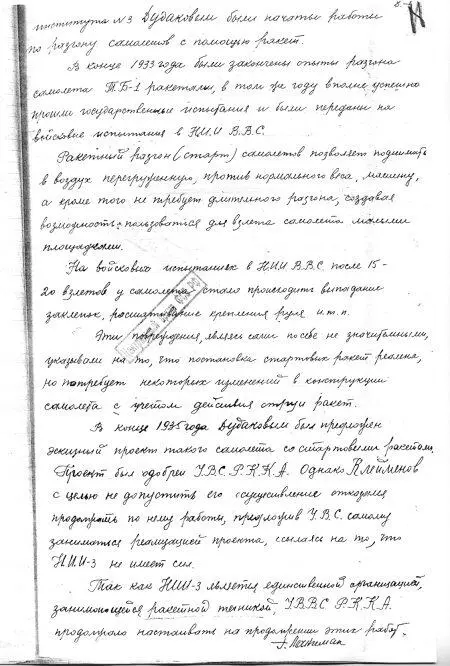 8.
института №3 Дудаковым были начаты работы
по разгону самолетов с помощью ракет.
В конце 1933 года были закончены опыты разгона
самолета Т.Б-1 ракетами, в том же году вполне успешно
прошли государственные испытания и были переданы на
войсковые испытания в Н.И.И В.В.С.
Ракетный разгон (старт) самолетов позволяет поднимать
в воздух перегруженную, против нормального веса, машину,
а кроме того не требует длительного разгона, создавая
возможность пользоваться для взлета самолета малыми
площадками.
На войсковых испытаниях в Н.И.И В.В.С. после 15-
20 взлетов у самолета стало происходить выпадание
заклепок, расшатывание крепления руля и.т.п.
Эти повреждения, являясь сами по себе не значительными,
указывали на то, что постановка стартовых ракет реальна,
но потребует некоторых изменений в конструкции
самолета с учетом действия струи ракет.
В конце 1935 года Дудаковым был предложен
эскизный проект такого самолета со стартовыми ракетами.
Проект был одобрен У.В.С. Р.К.К.А. Однако Клейменов
с целью не допустить его осуществление отказался
продолжать по нему работы, предложив У.В.С. самому
заниматься реализацией проекта, ссылаясь на то, что
Н.И.И-3 не имеет сил.
Так как НИИ-3 является единственной организацией,
занимающейся ракетной техникой, У.В.В.С Р.К.К.А.
продолжало настаивать на продолжении этих работ.